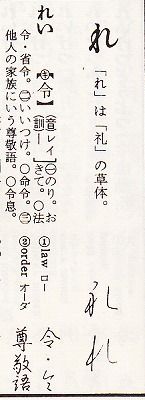 れ
「れ」は「礼」の草体。
礼 れ
れい
【令】〔音レイ 訓―〕㊀のり。おきて。○法令・省令。㊁いいつけ。○命令。㊂他人の家族にいう尊敬語。○令息。
①law ロー
②order オーダ
令・令
尊敬語